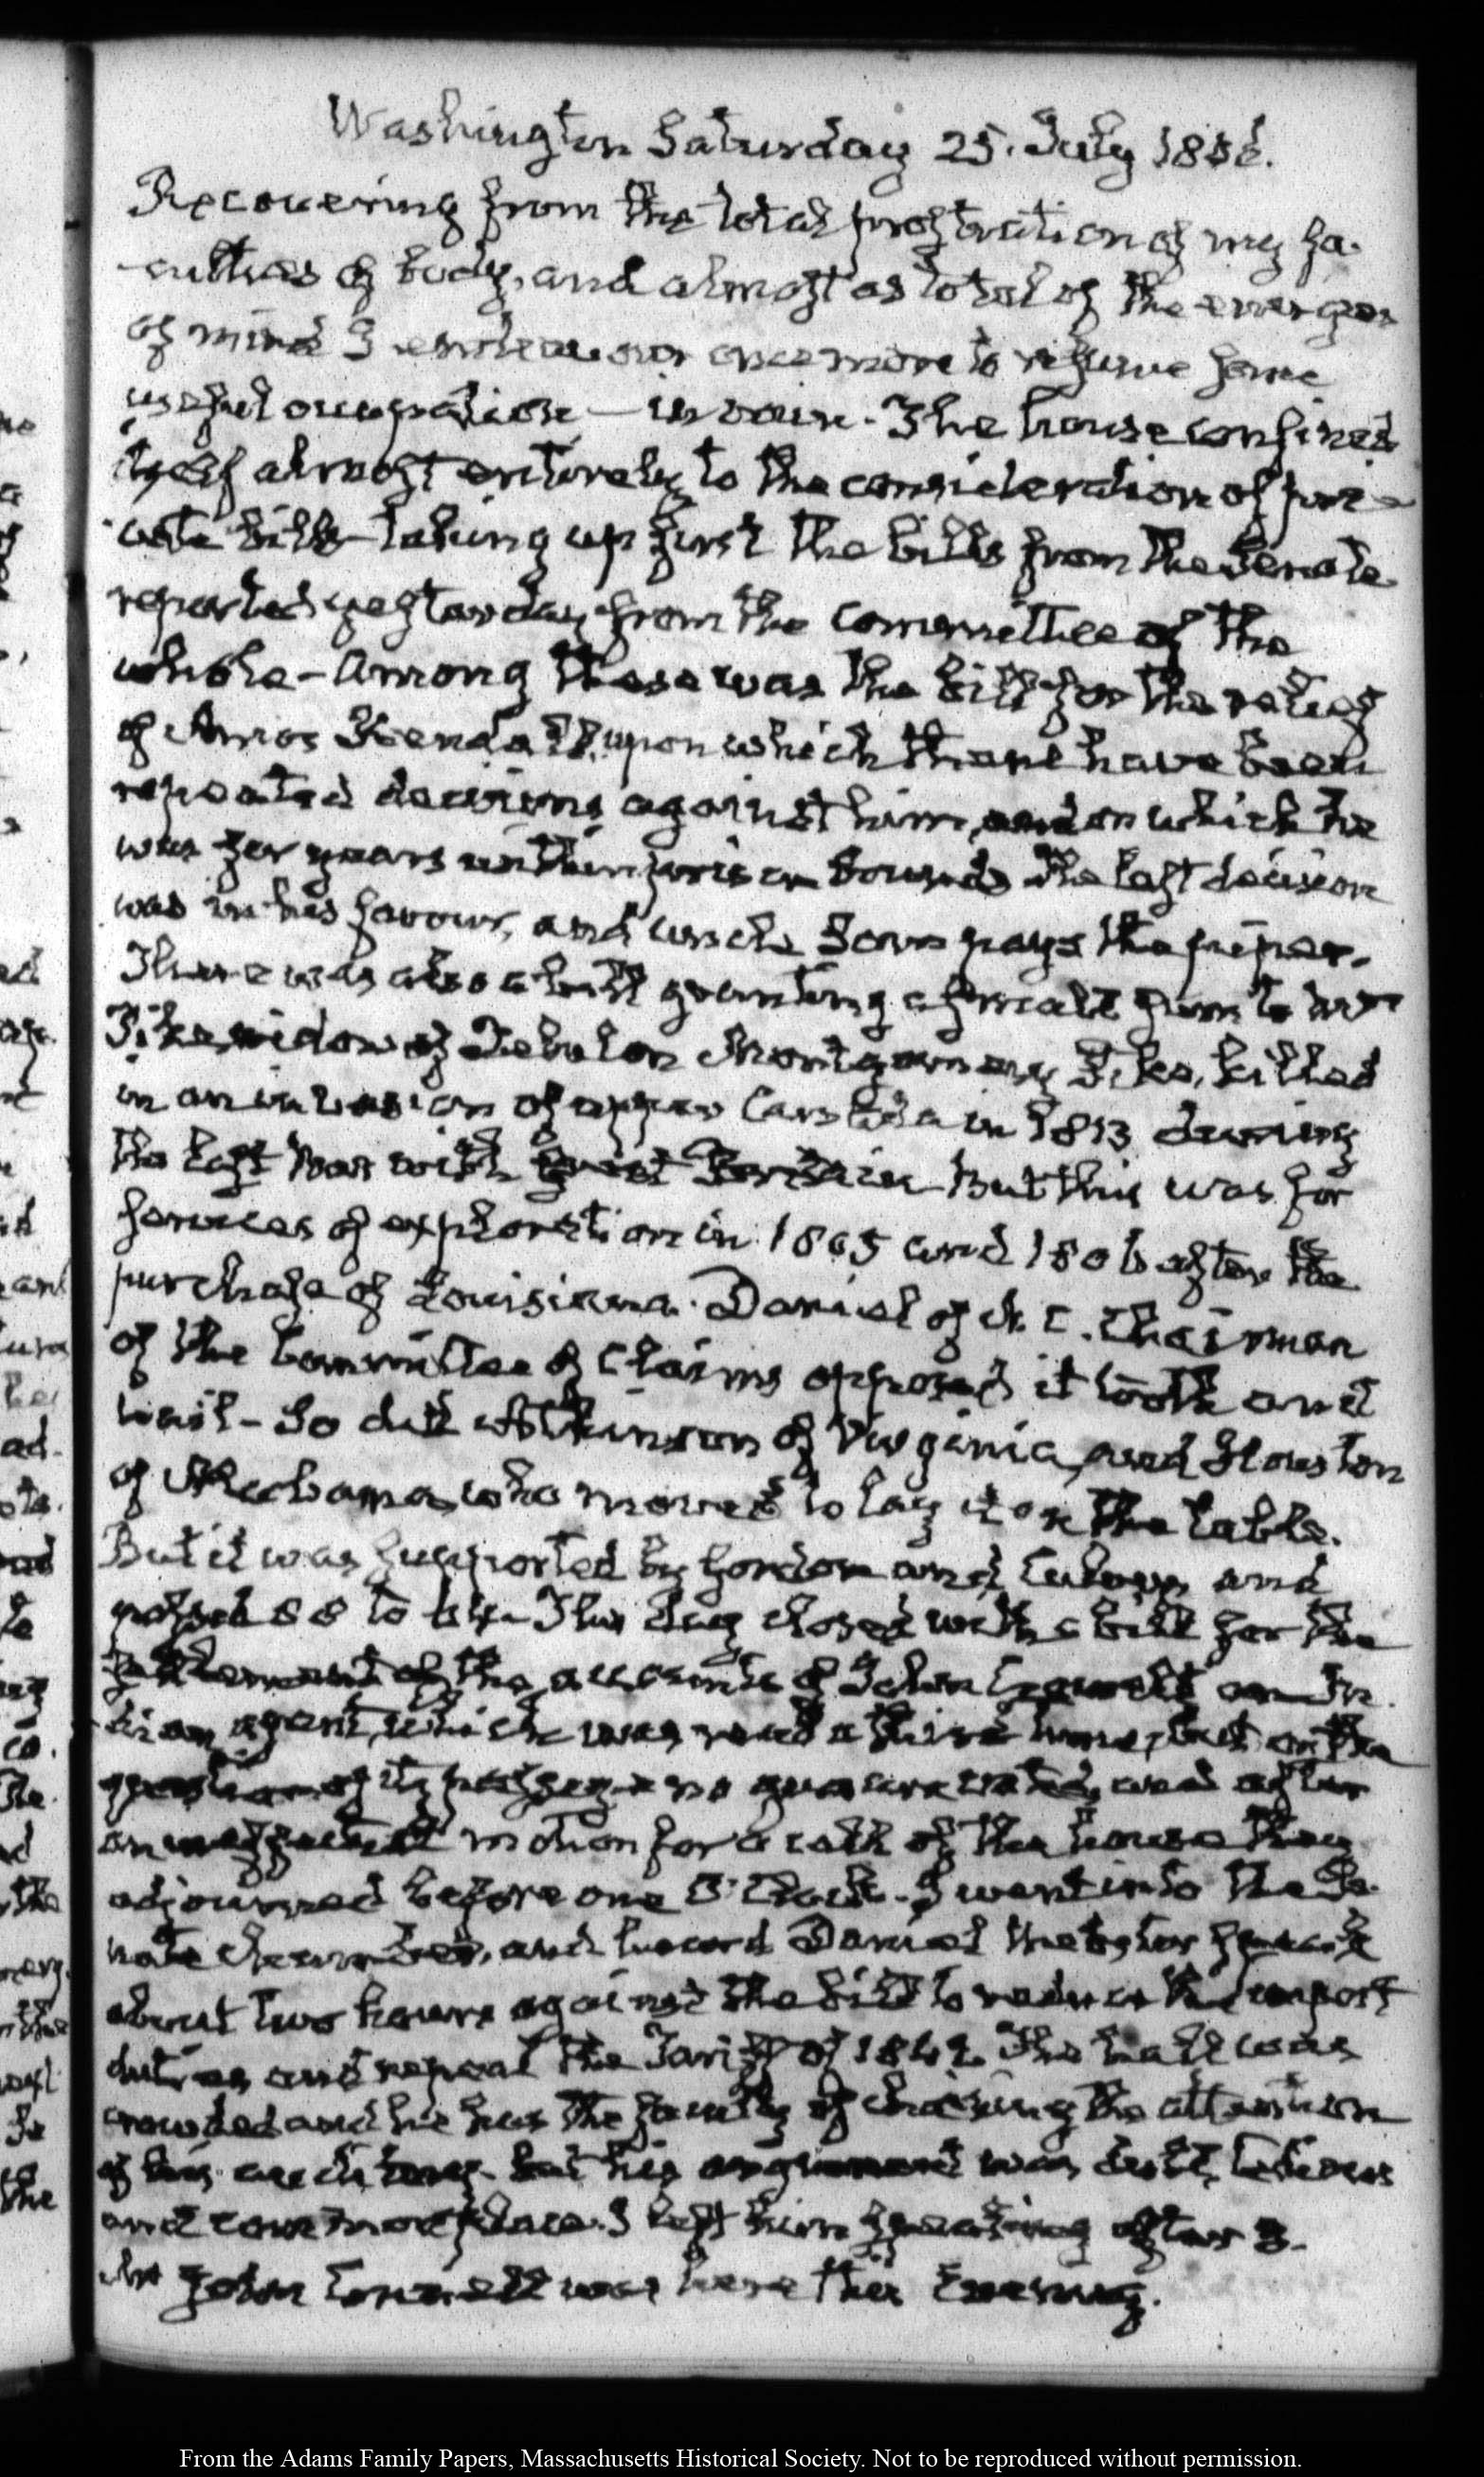 Washington Saturday 25. July 1846.
Recovering from the total prostration of my fa-
culties of body, and almost as total of the energies
of mind I endeavour once more to resume some
useful occupation — in vain. The house confined
itself almost entirely to the consideration of pri-
vate bills — taking up first the bills from the Senate
reported yesterday from the committee of the
whole — Among these was the bill for the relief
of Amos Kendall, upon which there have been
repeated decisions against him, and on which he
was for years within prison bounds. The last decision
was in his favour, and uncle Sam pays the piper.
There was also a bill granting a small sum to Mrs
Pike, widow of Zebulon Montgomery Pike, killed
in an invasion of upper Canada in 1813 during
the last War with Great Britain. But this was for
services of exploration in 1805 and 1806 after the
purchase of Louisiana. Daniel of N. C. Chairman
of the Committee of Claims opposed it tooth and
nail — So did Atkinson of Virginia, and Houston
of Alabama, who moved to lay it on the table.
But it was supported by Gordon and and
passed 66 to 64. The day closed with a bill for the
settlement of the accounts of John Crowell an In-
dian agent, which was read a third time, but on the
question of its passage no quorum voted, and after
an motion for a call of the house they
adjourned before one O'Clock. I went into the Se-
nate chamber, and heard Daniel Webster speak
about two hours against the bill to reduce the import
duties and repeal the Tariff of 1842. The hall was
crowded and he has the faculty of chaining the attention
of his auditory. but his argument was dull, tedious
and common place. I left him speaking after 3.
Mr John Connell was here this Evening.
From the Adams Family Papers, Massachusetts Historical Society. Not to be reproduced without permission.